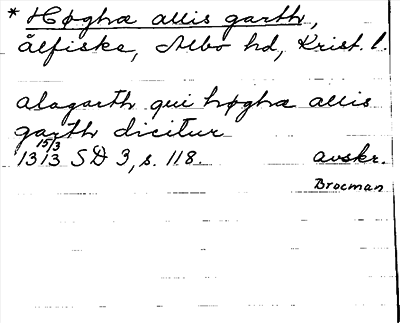 * Høghæ allis garth,
ålfiske, Albo hd, Krist. l.
alagarth qui høghæ allis
garth dicitur
1313 15/3 SD 3, s. 118. avskr.
Brocman